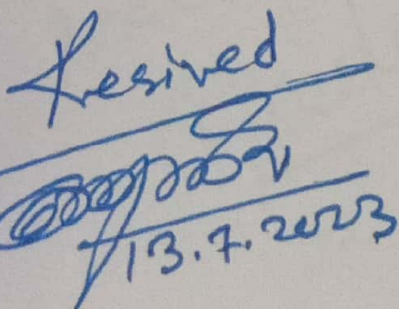 Resived
13.7.2023